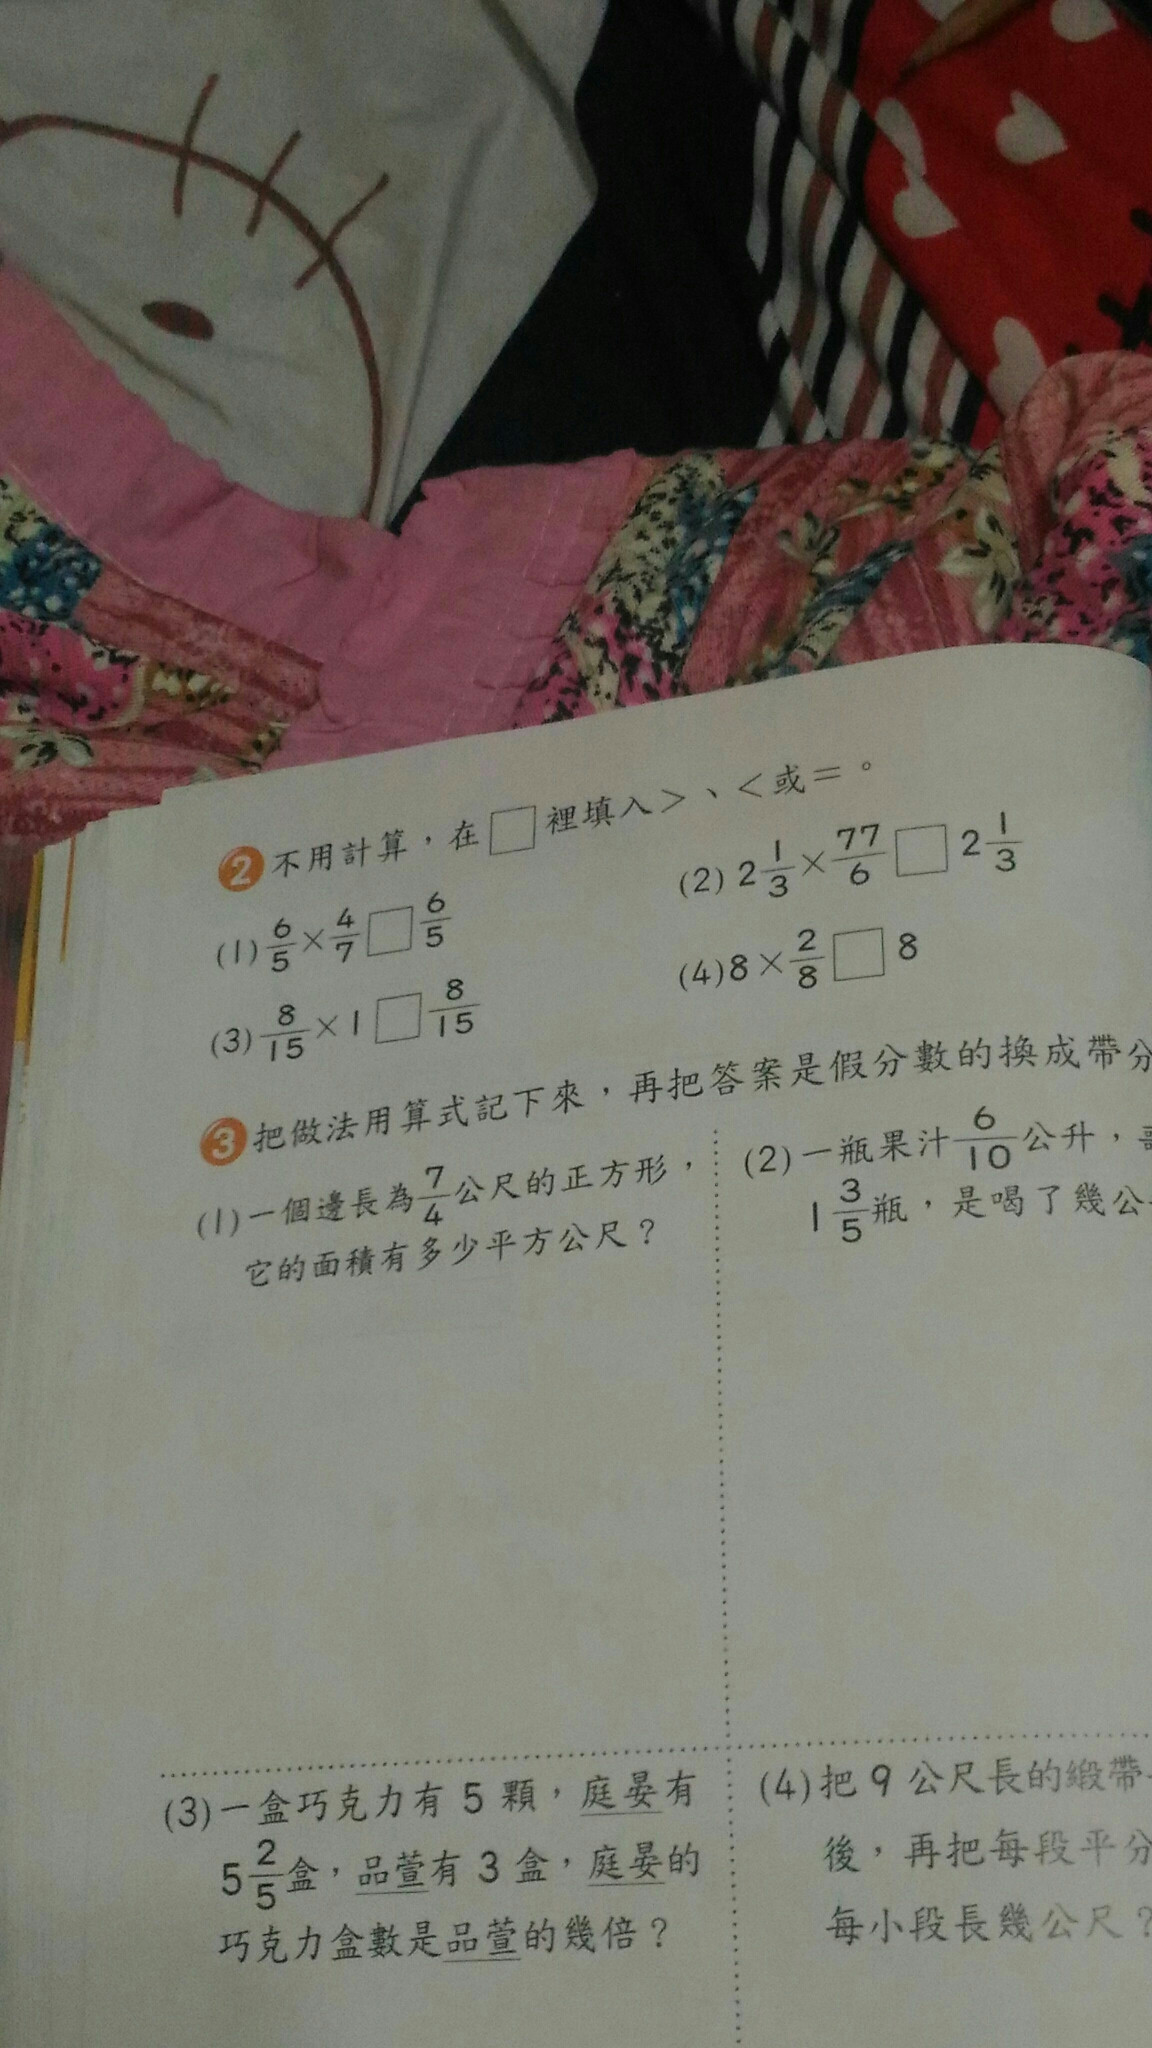 2 不用計算，在□裡填入>、<或=。
(1) 6/5 × 4/7 □ 6/5
(2) 2 1/3 × 77/6 □ 2 1/3
(3) 8/15 × 1 □ 8/15
(4) 8 × 2/8 □ 8
3 把做法用算式記下來，再把答案是假分數的換成帶分
(1) 一個邊長為 7/4 公尺的正方形，
它的面積有多少平方公尺？
(2) 一瓶果汁 6/10 公升，
1 3/5 瓶，是喝了幾公
(3) 一盒巧克力有 5 顆，庭晏有
5 2/5 盒，品萱有 3 盒，庭晏的
巧克力盒數是品萱的幾倍？
(4) 把 9 公尺長的緞帶
後，再把每段平分
每小段長幾公尺？